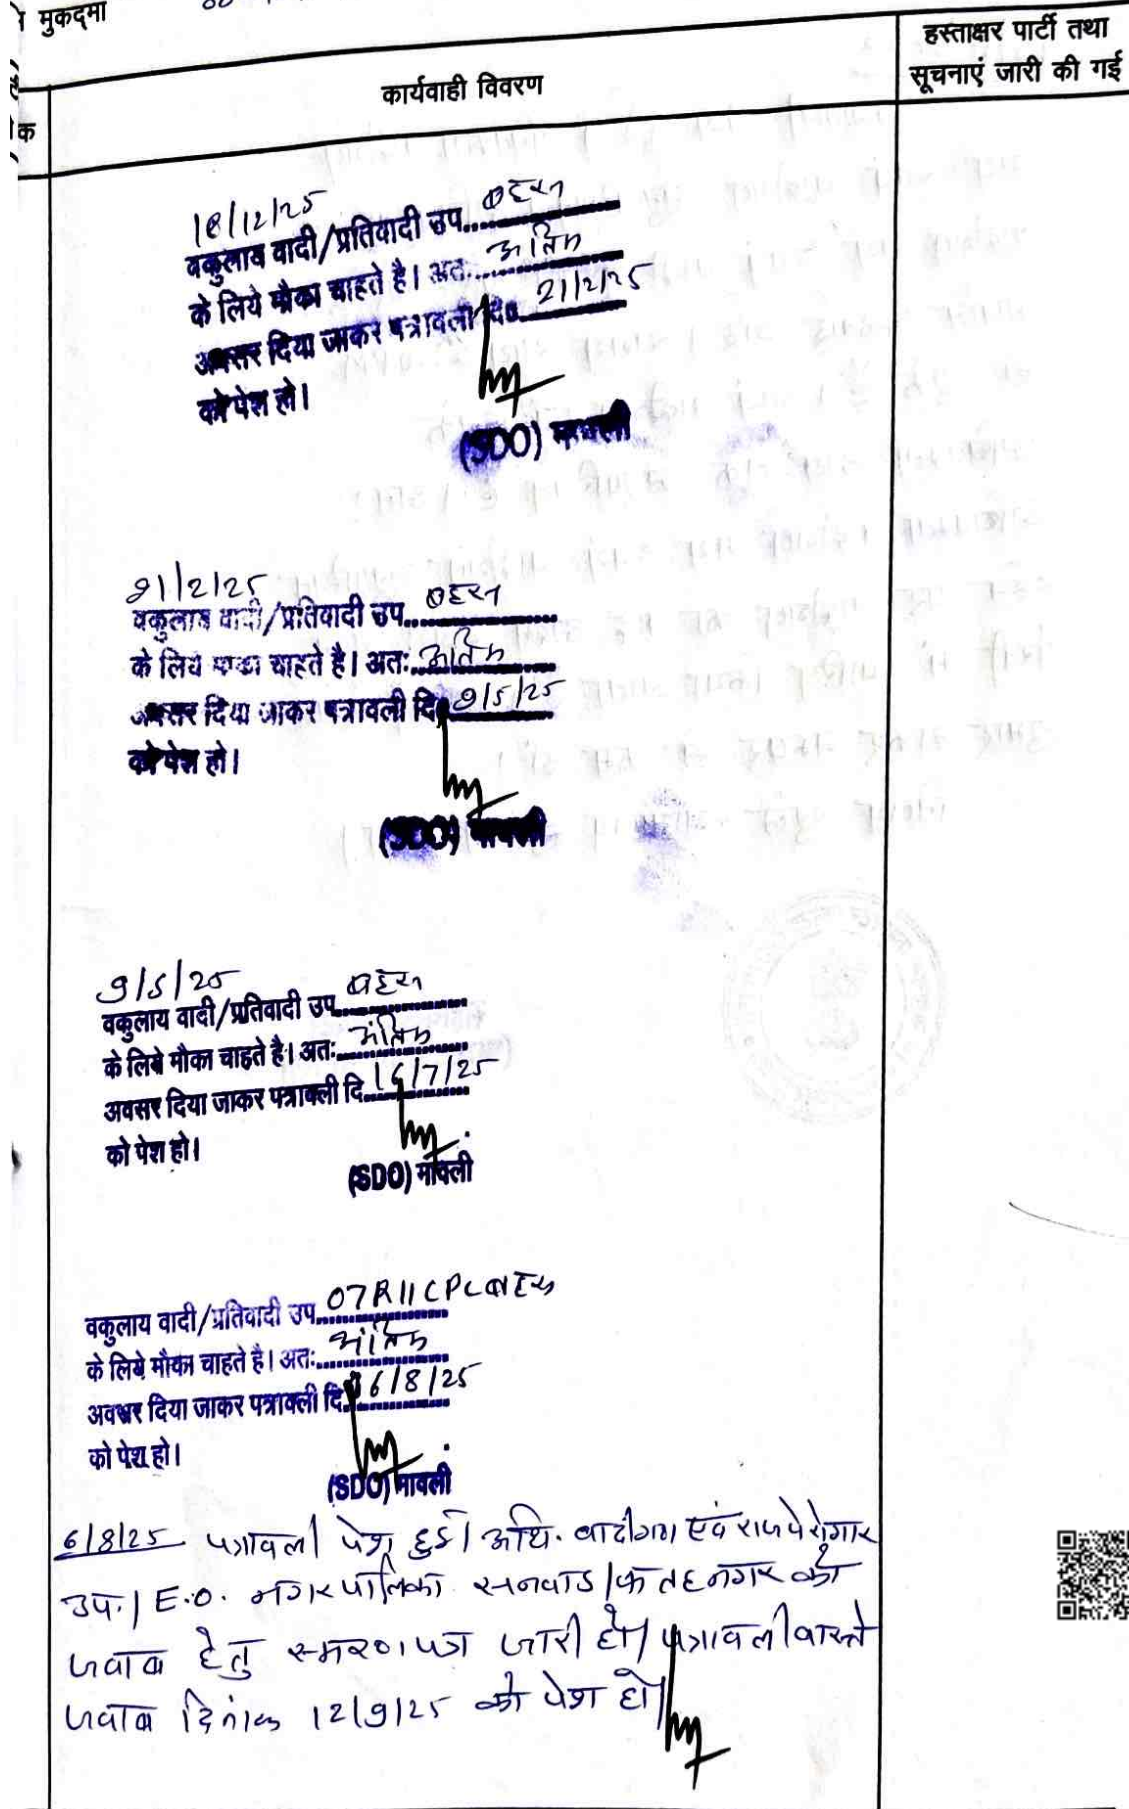 मुकदमा
कार्यवाही विवरण
हस्ताक्षर पार्टी तथा
सूचनाएं जारी की गई
क
18/12/25
वकुलाय वादी/प्रतिवादी उप......बहस
के लिये मौका चाहते है। अतः.....अंतिम
अवसर दिया जाकर पत्रावली दि. 21/2/25
को पेश हो।
(SDO) मावली
21/2/25
वकुलाय वादी/प्रतिवादी उप......बहस
के लिये मौका चाहते है। अतः.....अंतिम
अवसर दिया जाकर पत्रावली दि. 9/5/25
को पेश हो।
(SDO) मावली
9/5/25
वकुलाय वादी/प्रतिवादी उप......बहस
के लिये मौका चाहते है। अतः.....अंतिम
अवसर दिया जाकर पत्रावली दि. 16/7/25
को पेश हो।
(SDO) मावली
वकुलाय वादी/प्रतिवादी उप......07R11CPC बहस
के लिये मौका चाहते है। अतः.....अंतिम
अवसर दिया जाकर पत्रावली दि. 6/8/25
को पेश हो।
(SDO) मावली
6/8/25 पत्रावली पेश हुई। अधि. वादीगण एवं राजपेरोकार
उप.। E.O. नगरपालिका सनवाड/फतहनगर को
जवाब हेतु स्मरण पत्र जारी हो। पत्रावली वास्ते
जवाब दिनांक 12/9/25 को पेश हो।